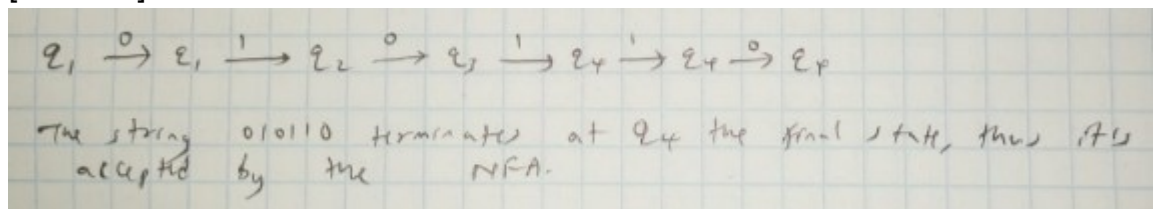 q₁ 0→ q₁ 1→ q₂ 0→ q₃ 1→ q₄ 1→ q₄ 0→ q₄
The string 010110 terminates at q₄ the final state, thus it is
accepted by the NFA.